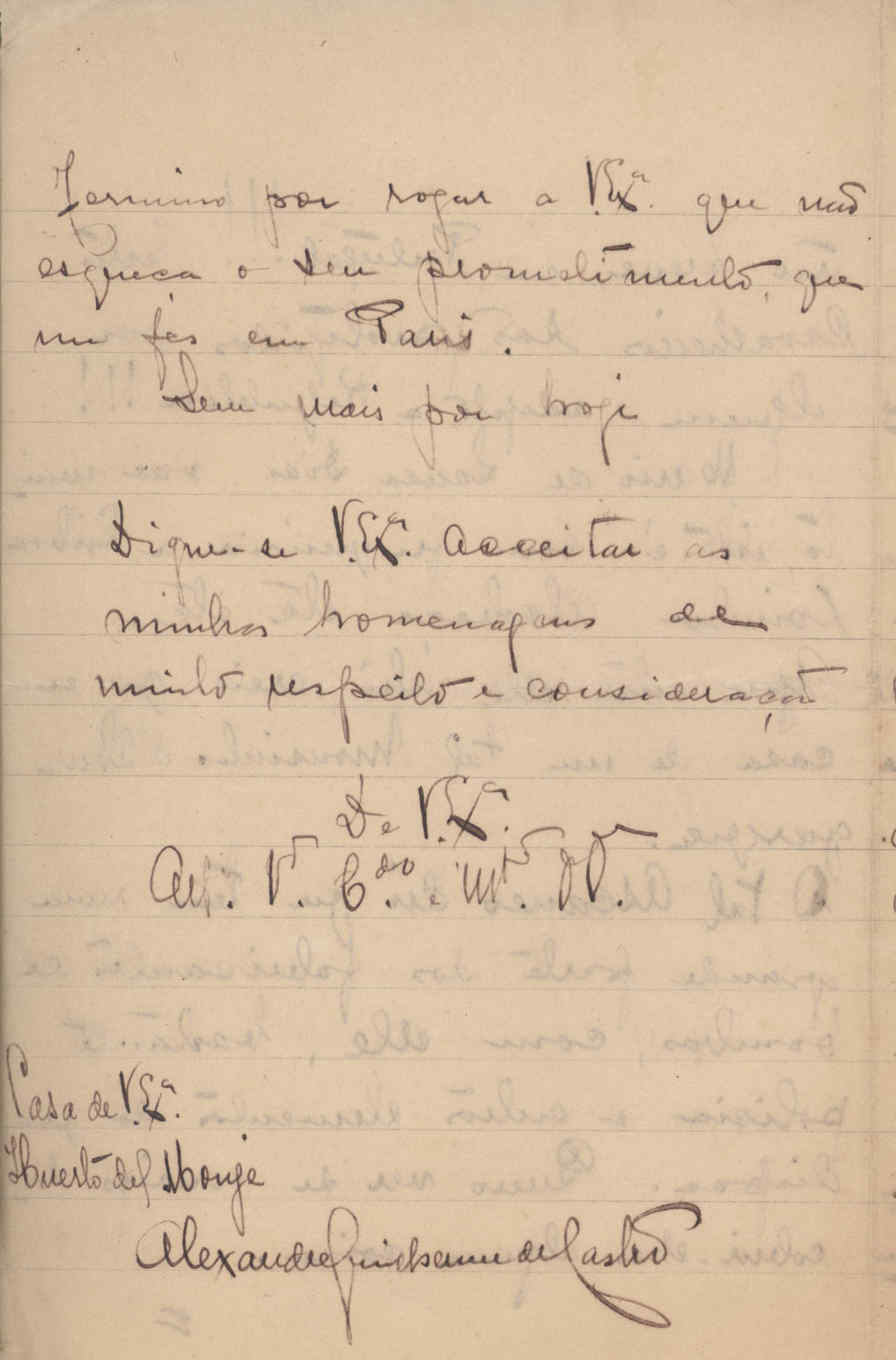 Termino por rogar a V.Exª. que não
esqueça o seu promettimento, que
me fes em Paris.
Sem mais por hoje
Digne-se V.Exª. acceitar as
minhas homenagens de
muito respeito e consideração
De V.Exª.
Att. V. C.do e Mt.
Casa de V.Exª.
Huerto del Monje
Alexandre de Castro